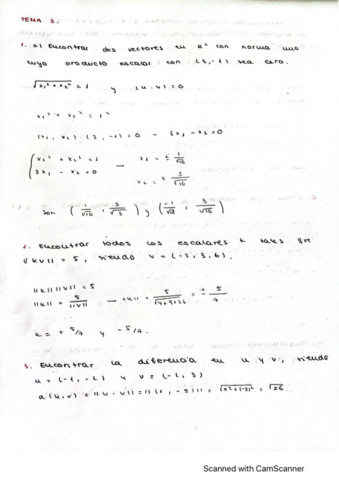 TEMA 3.
1. a) Encontrar dos vectores en R² con norma uno
cuyo producto escalar con (3,-1) sea cero.
√(x₁² + x₂²) = 1 y (u·v) = 0
x₁² + x₂² = 1²
(x₁, x₂) · (3, -1) = 0 → 3x₁ - x₂ = 0
{ x₁² + x₂² = 1 → x₁ = ± 1/√10
3x₁ - x₂ = 0 x₂ = ± 3/√10
Son y
2. Encontrar todos los escalares k tales que
||kv|| = 5, siendo v = (-2, 3, 6).
||k|| ||v|| = 5
||k|| = 5/||v|| → ||k|| = 5/√(4+9+36) = ± 5/7
k = + 5/7 y -5/7.
3. Encontrar la diferencia en u y v, siendo
u = (-1, -2) y v = (-2, 3)
d(u,v) = ||u - v|| = ||(1, -5)|| = = √26.
Scanned with CamScanner